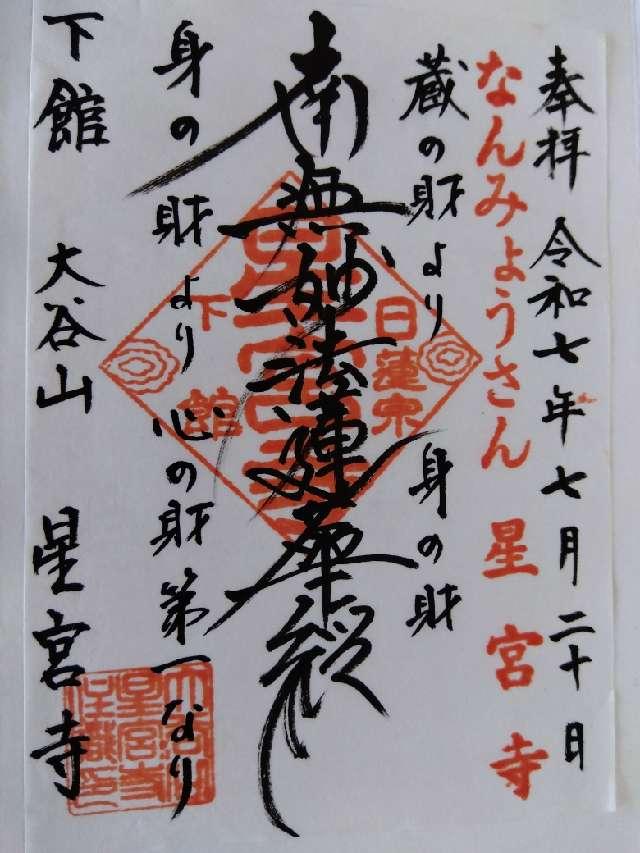 奉拝 令和七年七月二十日
なんみょうさん 星宮寺
蔵の財より 身の財
南無妙法蓮華経
日蓮宗
星宮寺
下館
身の財より 心の財 第一なり
下館 大谷山 星宮寺
大谷山
星宮寺
住職印